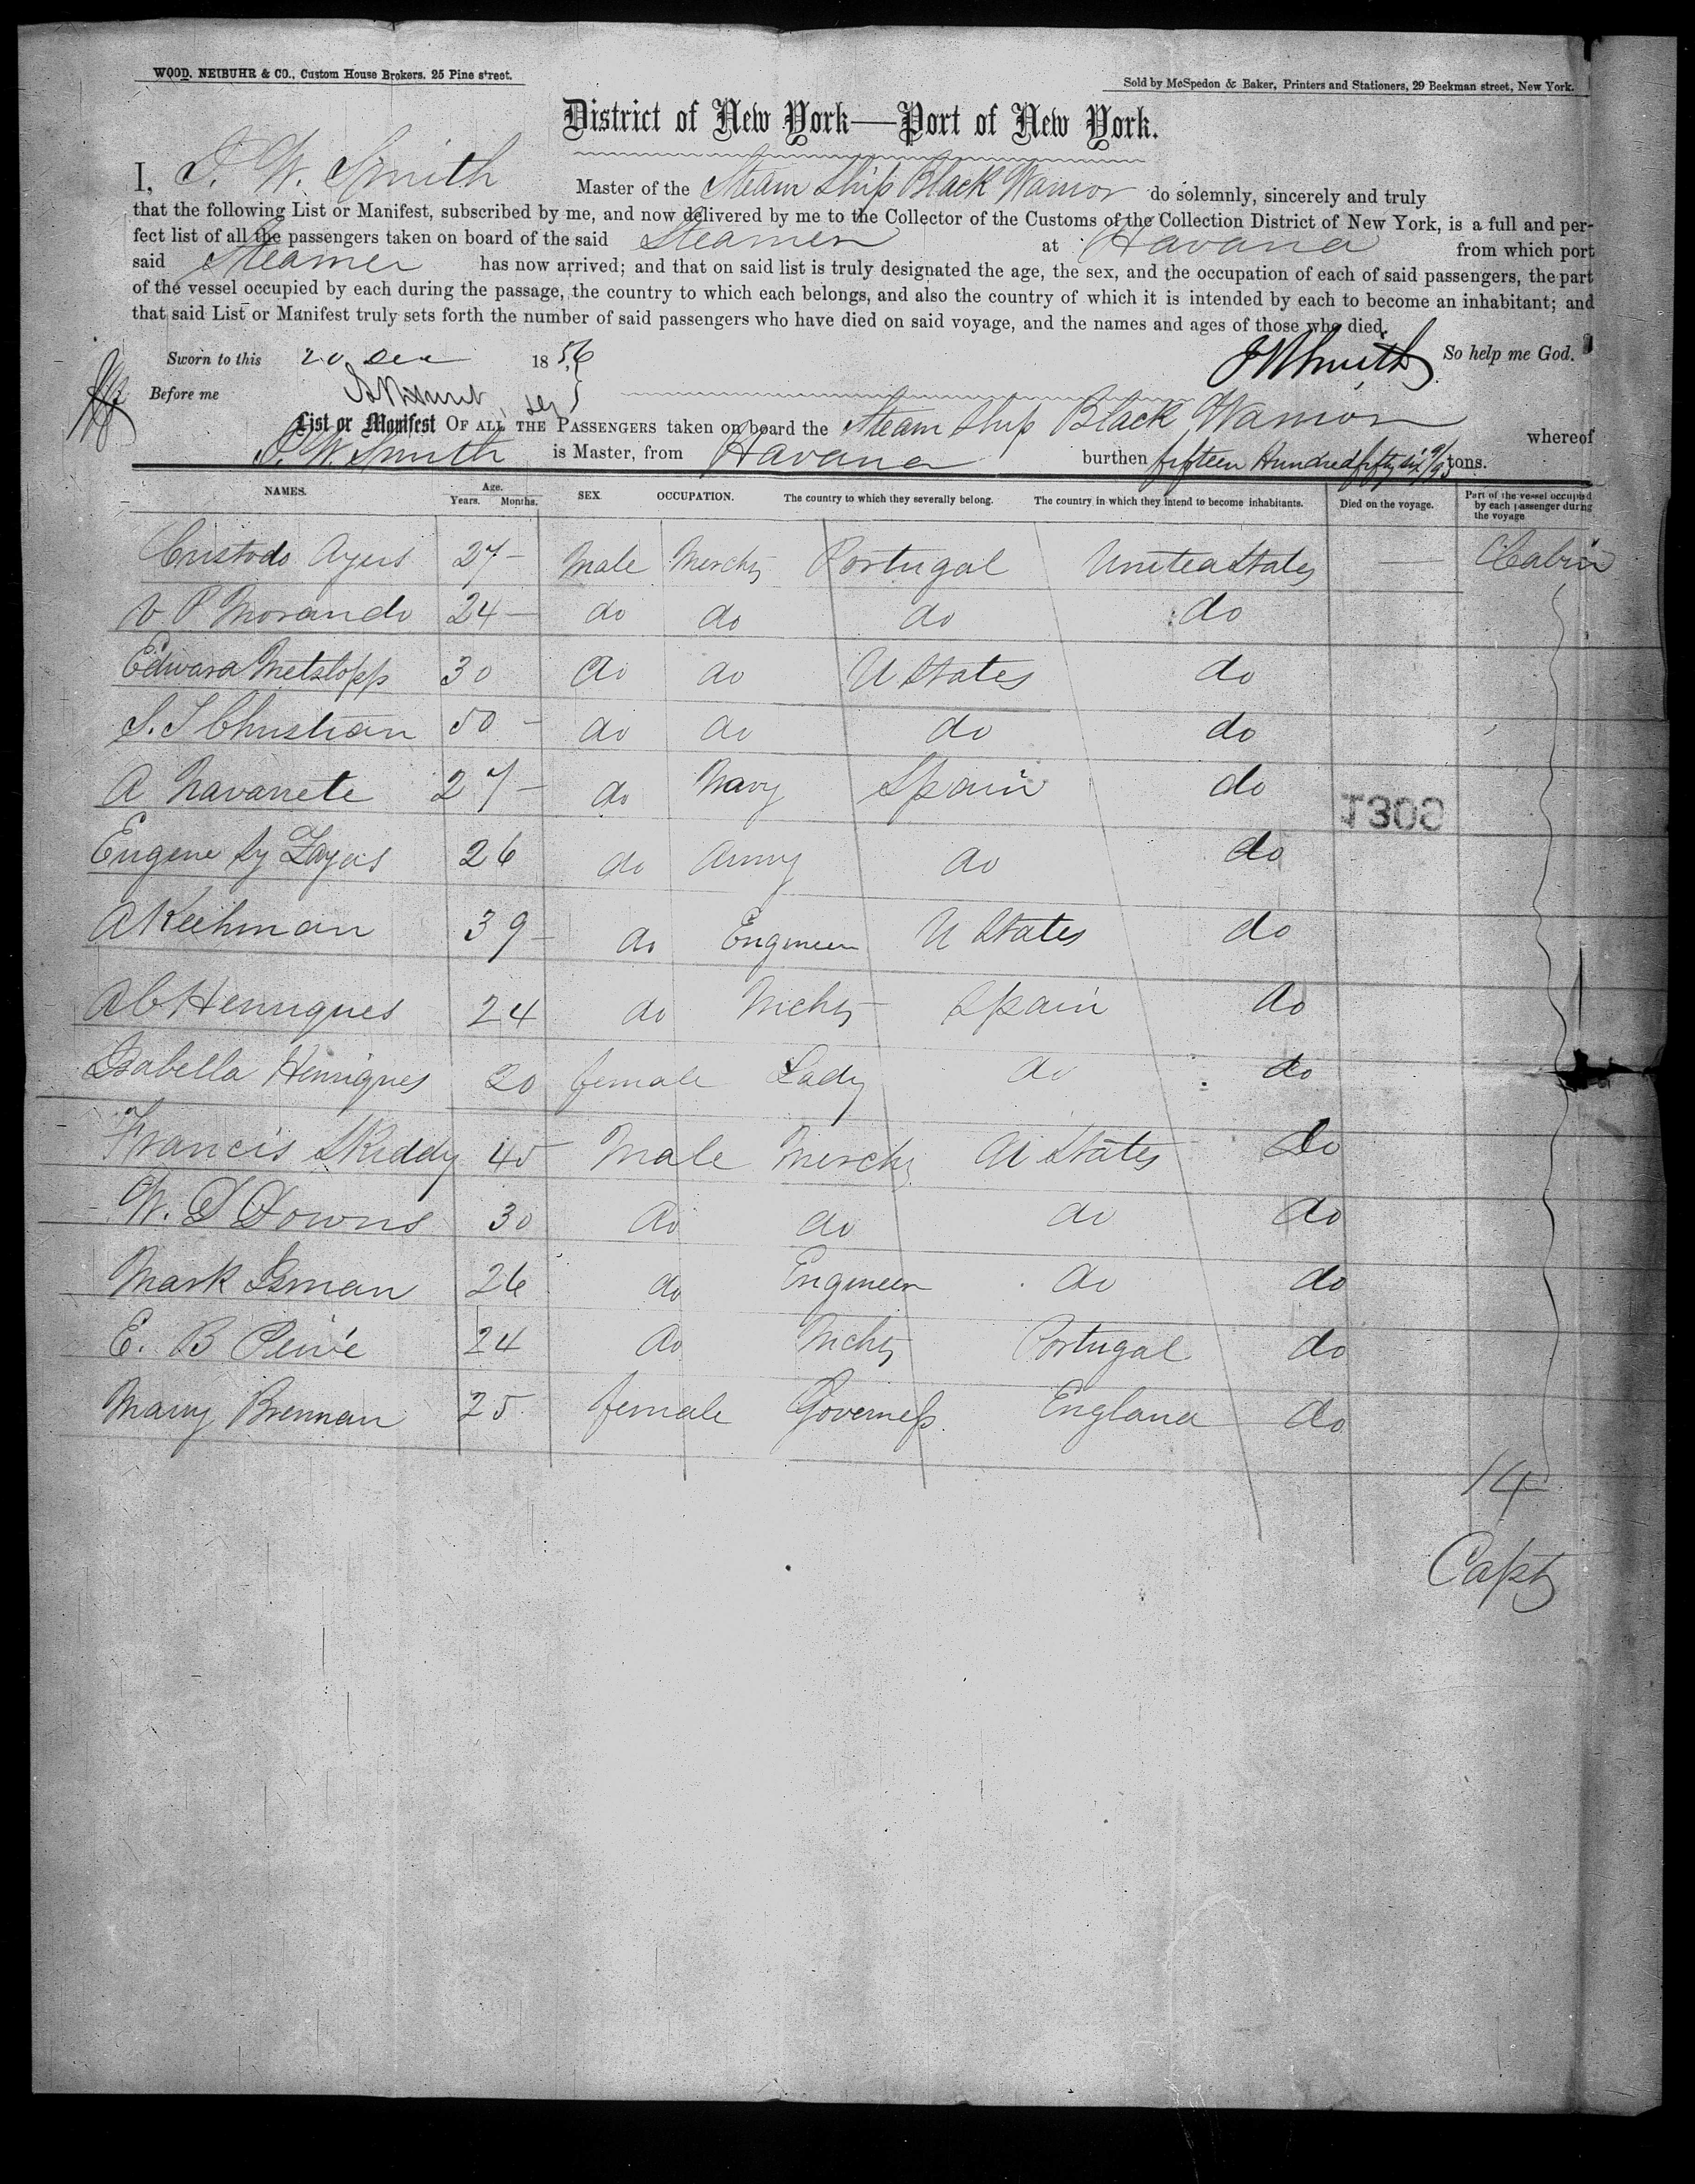 WOOD, NEIBUHR & CO., Custom House Brokers. 25 Pine street.
Sold by McSpedon & Baker, Printers and Stationers, 29 Beekman street, New York.
District of New York—Port of New York.
I, J. W. Smith Master of the Steam Ship Black Warrior do solemnly, sincerely and truly
that the following List or Manifest, subscribed by me, and now delivered by me to the Collector of the Customs of the Collection District of New York, is a full and per-
fect list of all the passengers taken on board of the said Steamer at Havana from which port
said Steamer has now arrived; and that on said list is truly designated the age, the sex, and the occupation of each of said passengers, the part
of the vessel occupied by each during the passage, the country to which each belongs, and also the country of which it is intended by each to become an inhabitant; and
that said List or Manifest truly sets forth the number of said passengers who have died on said voyage, and the names and ages of those who died.
Sworn to this 20 Dec 1856 JW Smith So help me God.
Before me
List or Manifest OF ALL THE PASSENGERS taken on board the Steam Ship Black Warrior whereof
J. W. Smith is Master, from Havana burthen fifteen Hundred fifty six 9/95 tons.
NAMES. Age. Years. Months. SEX. OCCUPATION. The country to which they severally belong. The country in which they intend to become inhabitants. Died on the voyage. Part of the vessel occupied by each passenger during the voyage
Custodo 27 – Male Mercht Portugal United States — Cabin
V. P Morando 24 – do do do do
Edward 30 do do U States do
S. S Christian 50 – do do do do
A Navarrete 27 – do Navy Spain do
1309
Eugene 26 do Army do do
A Keehman 39 – do Engineer U States do
A C Henriques 24 do Mcht Spain do
Isabella Henriques 20 female Lady do do
Francis Skiddy 45 Male Mercht U States do
W. S Downs 30 do do do do
Mark Isman 26 do Engineer do do
E. B 24 do Mcht Portugal do
Mary Brennan 25 female Governess England do
14
Capt